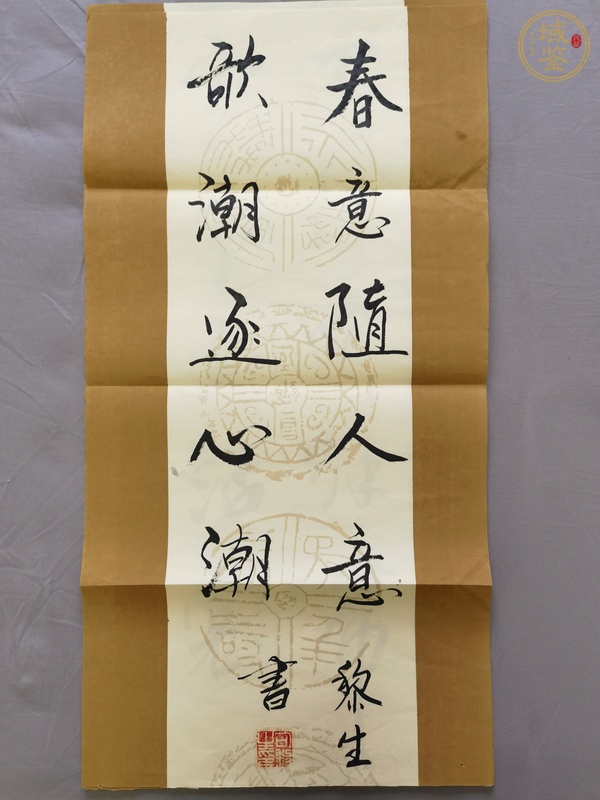 春意随人意
歌潮逐心潮
黎生
書
域鉴